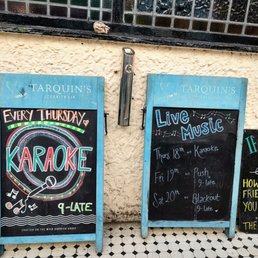 TARQUIN'S
EVERY THURSDAY
KARAOKE
9-LATE
TARQUIN'S
Live
Music
Thurs 18th Karaoke
Fri 19th Push
9-late
Sat 20th Blackout
9-late
IF
HOW
FRIE
YOU
YOU
THE